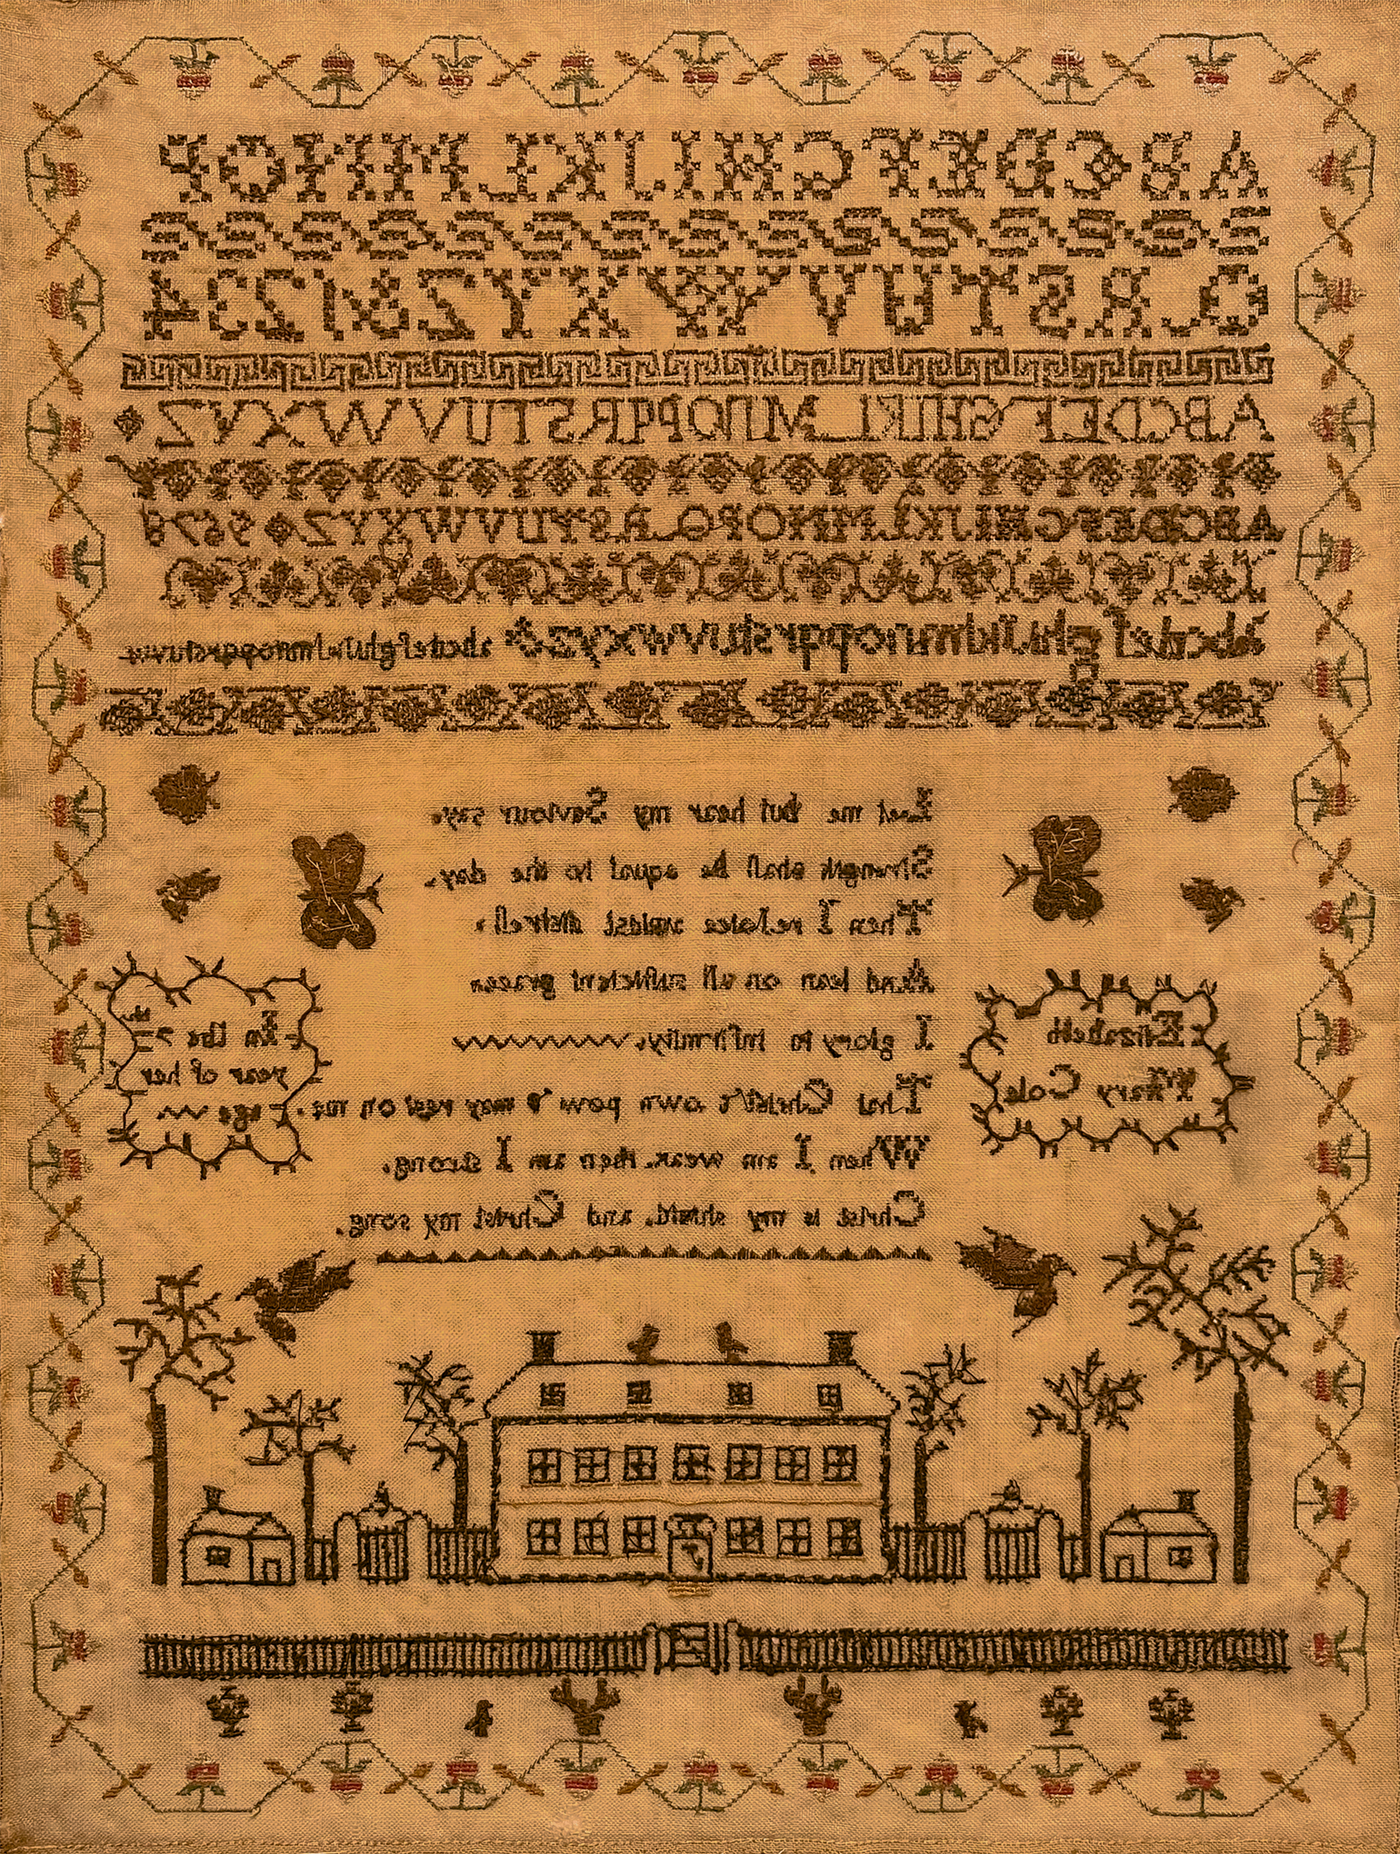 A B C D E F G H I J K L M N O P
Q R S T U V W X Y Z & 1 2 3 4
A B C D E F G H I K L M N O P Q R S T U V W X Y Z
A B C D E F G H I J K L M N O P Q R S T U V W X Y Z 5 6 7 8
a b c d e f g h i j k l m n o p q r s t u v w x y z & a b c d e f g h i j k l m n o p q r s t u v w
Let me but hear my Saviour say.
Strength shall be equal to the day.
Then I rejoice midst distreſs.
And lean on all sufficient grace.
I glory in infirmity.
That Christ's own pow'r may rest on me.
When I am weak, then am I strong.
Christ is my shield, and Christ my song.
Elizabeth
Mary Cole
In the 7th
year of her
age